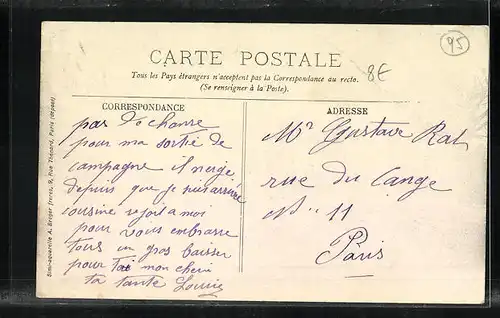 CARTE POSTALE
Tous les Pays étrangers n'acceptent pas la Correspondance au recto.
(Se renseigner à la Poste).
95
8E
CORRESPONDANCE
pas de chance
pour ma sortie de
campagne il neige
depuis que je suis arrivée
cousine se joit a moi
pour vous embrasse
tous un gros baiser
pour toi mon cheri
ta tante Louise
ADRESSE
Mr Gustave
rue du Cange
N° 11
Paris
Simi-aquarelle A. Breger frères, 9, Rue Thénard, Paris (déposé)